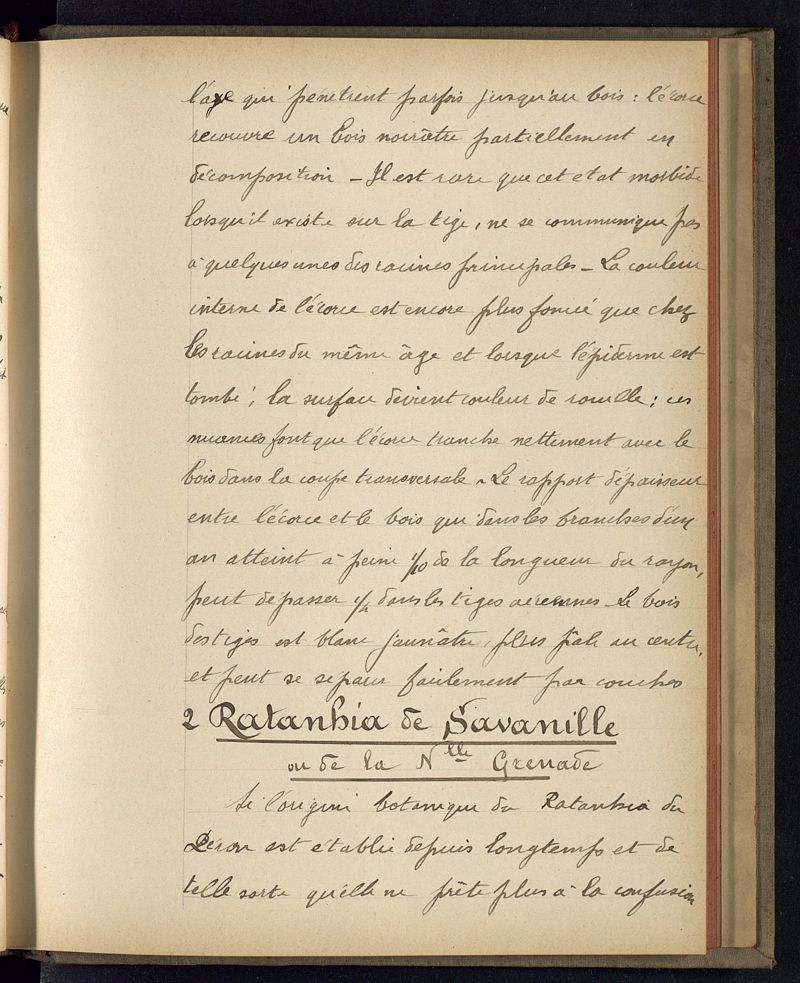 l'axe qui pénètrent parfois jusqu'au bois : l'écorce
recouvre un bois noirâtre partiellement en
décomposition – Il est rare que cet état morbide
lorsqu'il existe sur la tige, ne se communique pas
à quelques unes des racines principales – La couleur
interne de l'écorce est encore plus foncée que chez
les racines du même âge et lorsque l'épiderme est
tombé, la surface devient couleur de rouille ; ces
nuances font que l'écorce tranche nettement avec le
bois dans la coupe transversale – Le rapport d'épaisseur
entre l'écorce et le bois qui dans les branches d'un
an atteint à peine 1/10 de la longueur du rayon,
peut dépasser dans les tiges aériennes – Le bois
des tiges est blanc jaunâtre, plus pâle au centre,
et peut se séparer facilement par couches
2 Ratanhia de Savanille
ou de la Nlle Grenade
Si l'origine botanique du Ratanhia du
Pérou est établie depuis longtemps et de
telle sorte qu'elle ne prête plus à la confusion